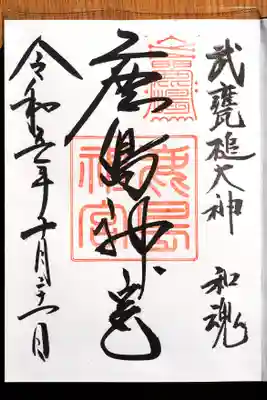 武甕槌大神 和魂
鹿島神宮
鹿島神宮
令和五年十月